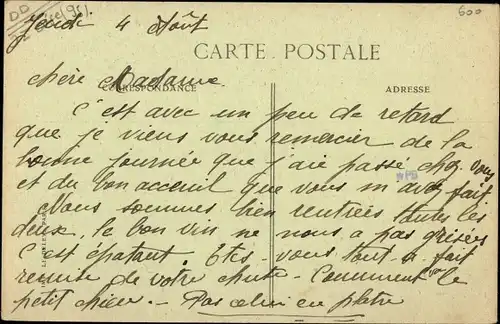 Jeudi 4 Août
500
CARTE POSTALE
chère Madame
CORRESPONDANCE
ADRESSE
C'est avec un peu de retard
que je viens vous remercier de la
bonne journée que j'aie passé chez vous
et du bon acceuil que vous m'avez fait.
Nous sommes bien rentrées toutes les
deux, le bon vin ne nous a pas grisées
C'est épatant. Etes-vous tout à fait
remise de votre chute - Comment va le
petit chien - Pas celui en platre